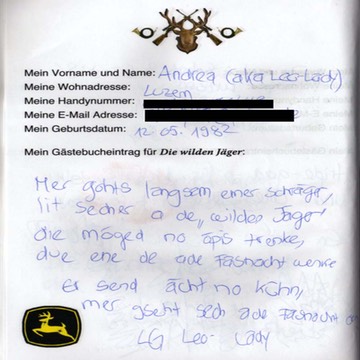 Mein Vorname und Name: Andrea (aka Leo-Lady)
Meine Wohnadresse: Luzern
Meine Handynummer:
Meine E-Mail Adresse:
Mein Geburtsdatum: 12.05.1982
Mein Gästebucheintrag für Die wilden Jäger:
Mer gohts langsam emer schräger,
lit secher a de "wilden Jäger"
die möged no äpis trenke,
due ene de ade Fasnacht wenke
Er send ächt no kühn,
mer gseht sech ade Fasnacht
LG Leo-Lady